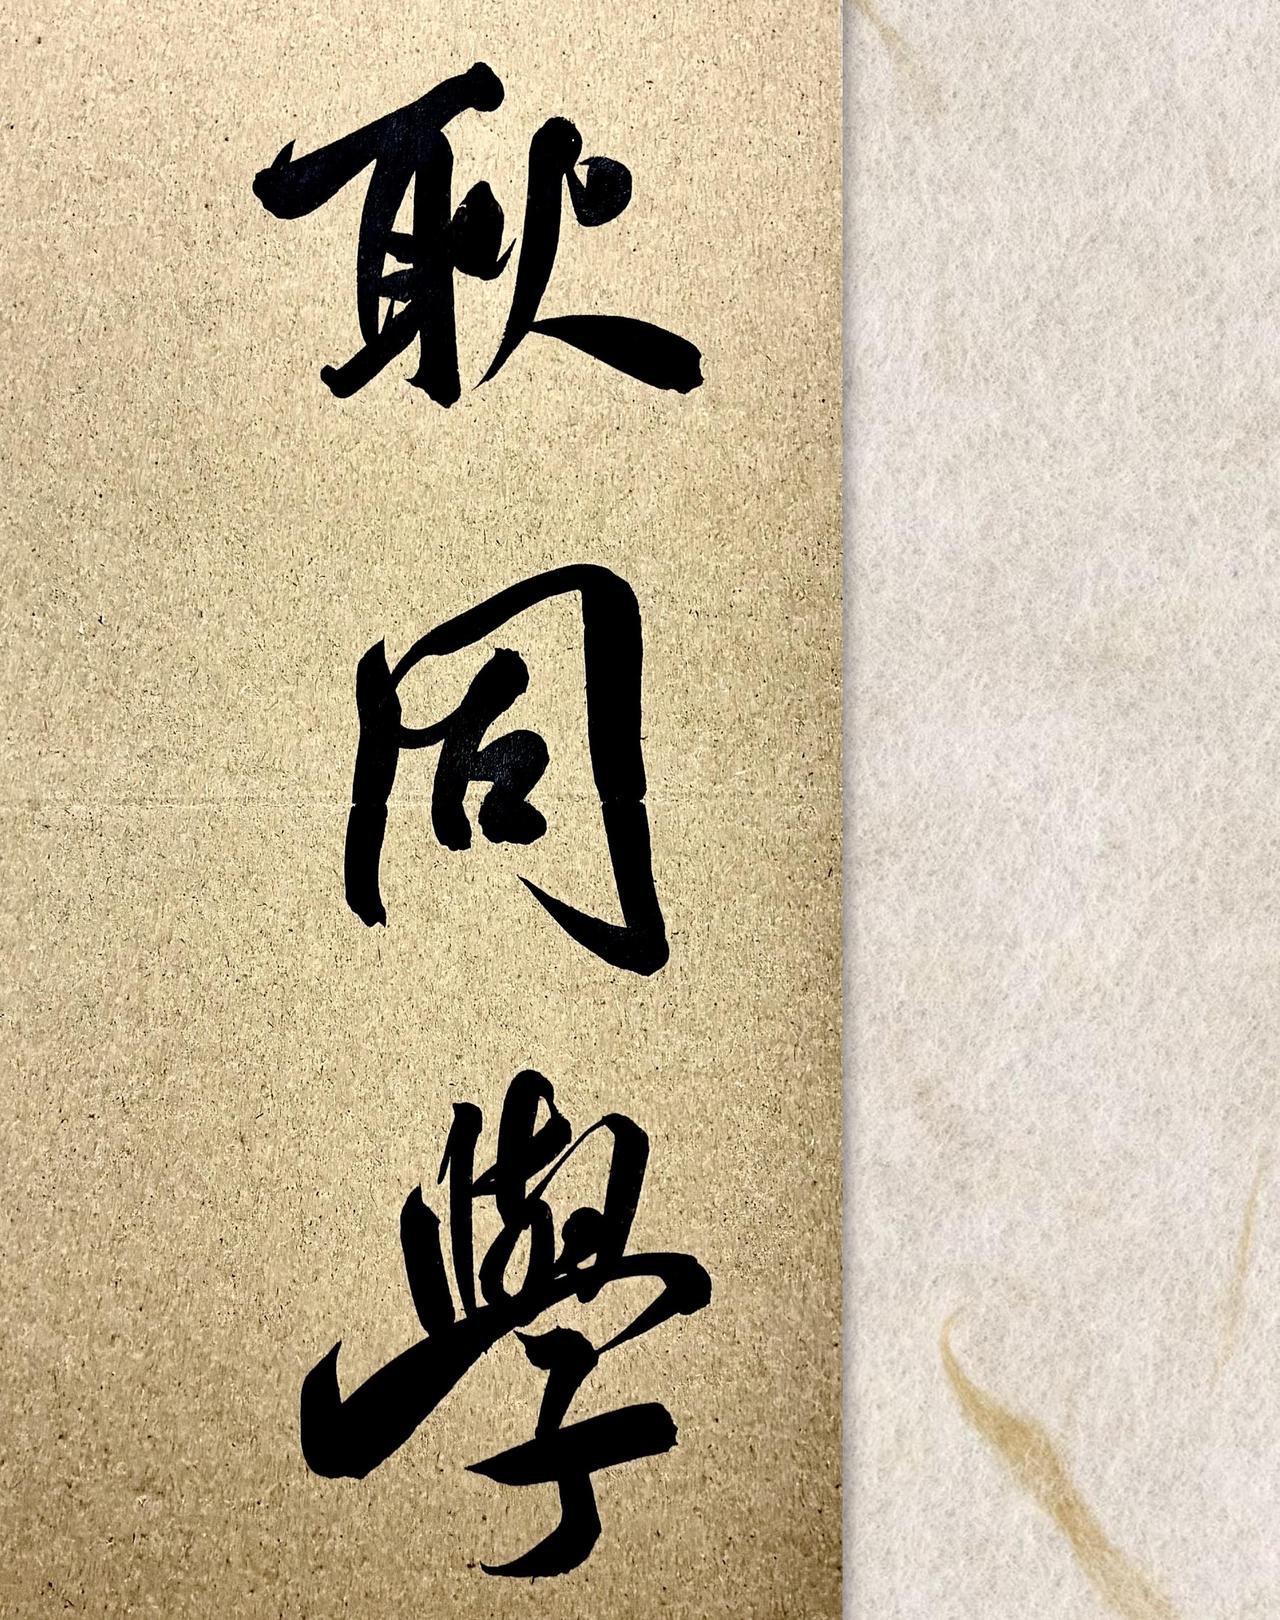 耿同學